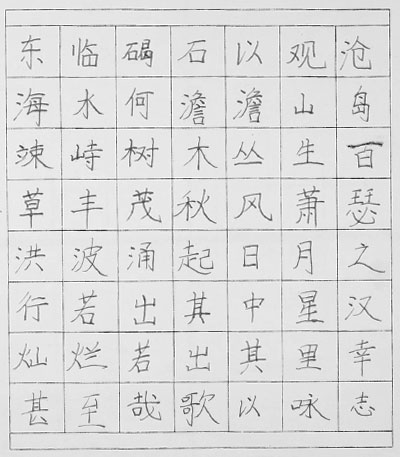 东临碣石以观沧
海水何澹澹山岛
竦峙树木丛生百
草丰茂秋风萧瑟
洪波涌起日月之
行若出其中星汉
灿烂若出其里幸
甚至哉歌以咏志